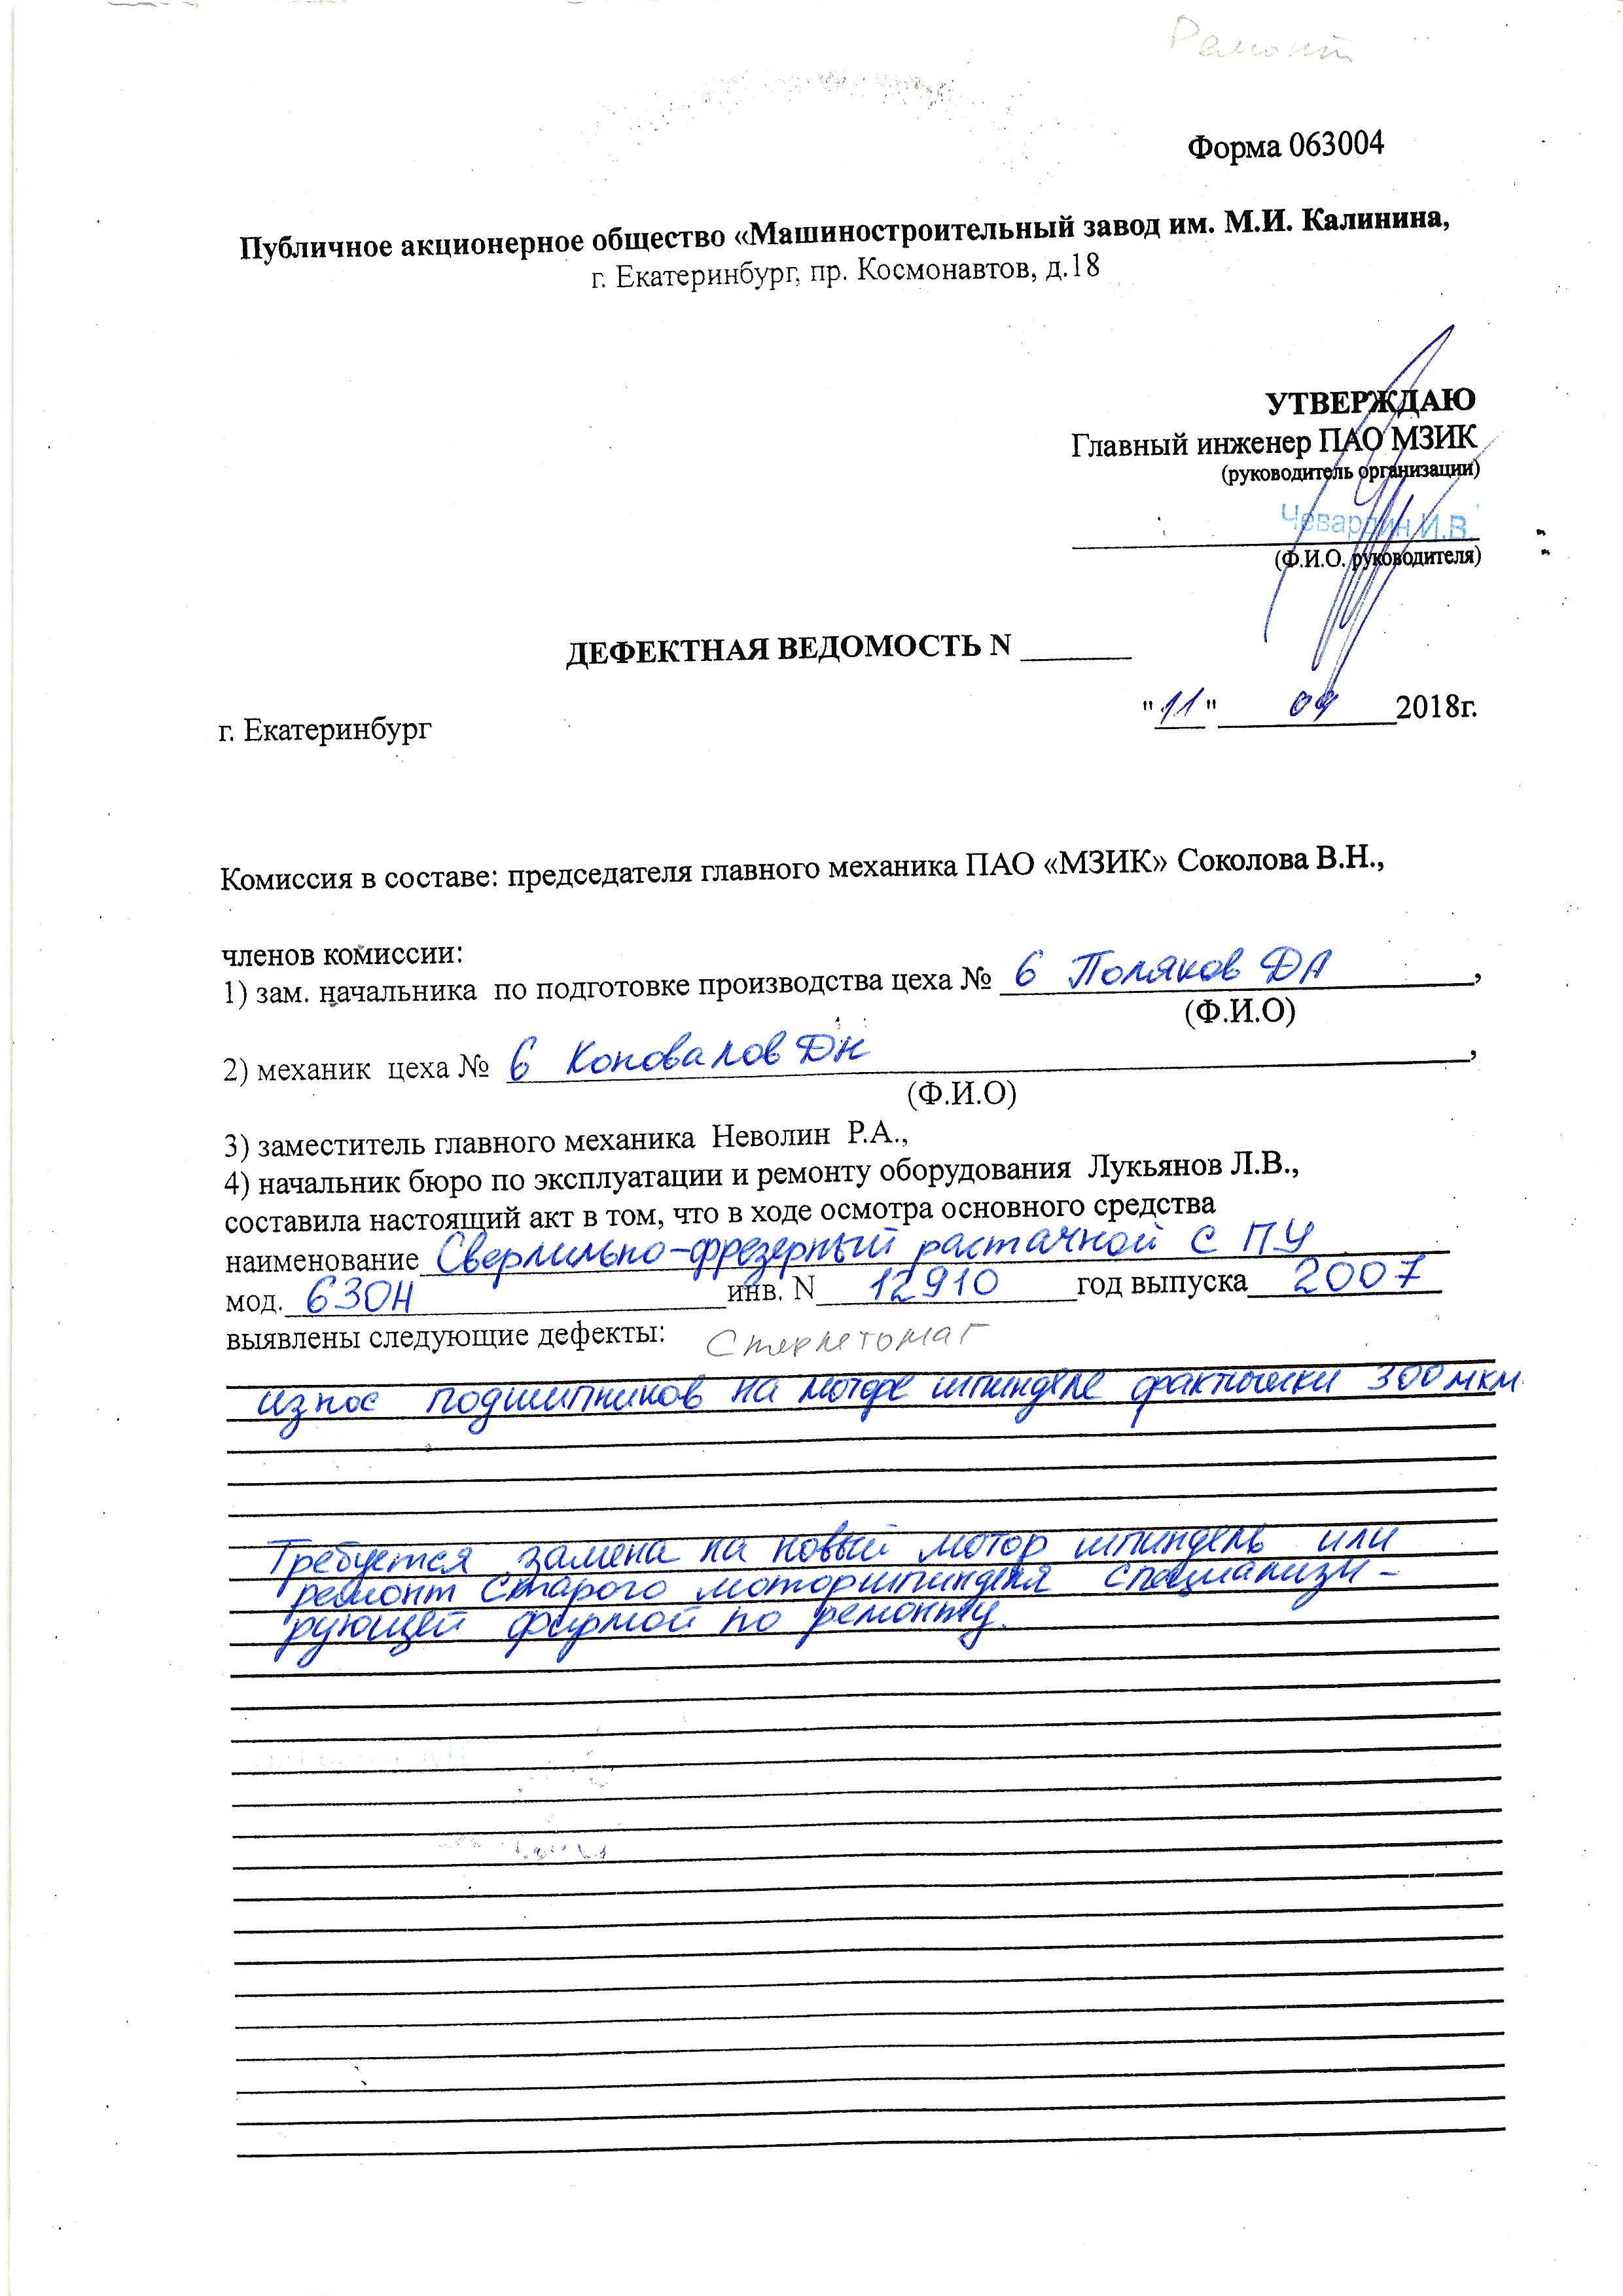 Ремонт
Форма 063004
Публичное акционерное общество «Машиностроительный завод им. М.И. Калинина,
г. Екатеринбург, пр. Космонавтов, д.18
УТВЕРЖДАЮ
Главный инженер ПАО МЗИК
(руководитель организации)
Чевардин И.В.
(Ф.И.О. руководителя)
ДЕФЕКТНАЯ ВЕДОМОСТЬ N _______
"11" 04 2018г.
г. Екатеринбург
Комиссия в составе: председателя главного механика ПАО «МЗИК» Соколова В.Н.,
членов комиссии:
1) зам. начальника по подготовке производства цеха № 6 Поляков ДА,
(Ф.И.О)
2) механик цеха № 6 Коновалов ДН,
(Ф.И.О)
3) заместитель главного механика Неволин Р.А.,
4) начальник бюро по эксплуатации и ремонту оборудования Лукьянов Л.В.,
составила настоящий акт в том, что в ходе осмотра основного средства
наименование Сверлильно-фрезерный расточной с ПУ
мод. 630H инв. N 12910 год выпуска 2007
выявлены следующие дефекты:
износ подшипников на шпинделе 300мкм.
Требуется замена на новый мотор шпиндель или
ремонт старого моторшпинделя специализи-
рующей фирмой по ремонту.